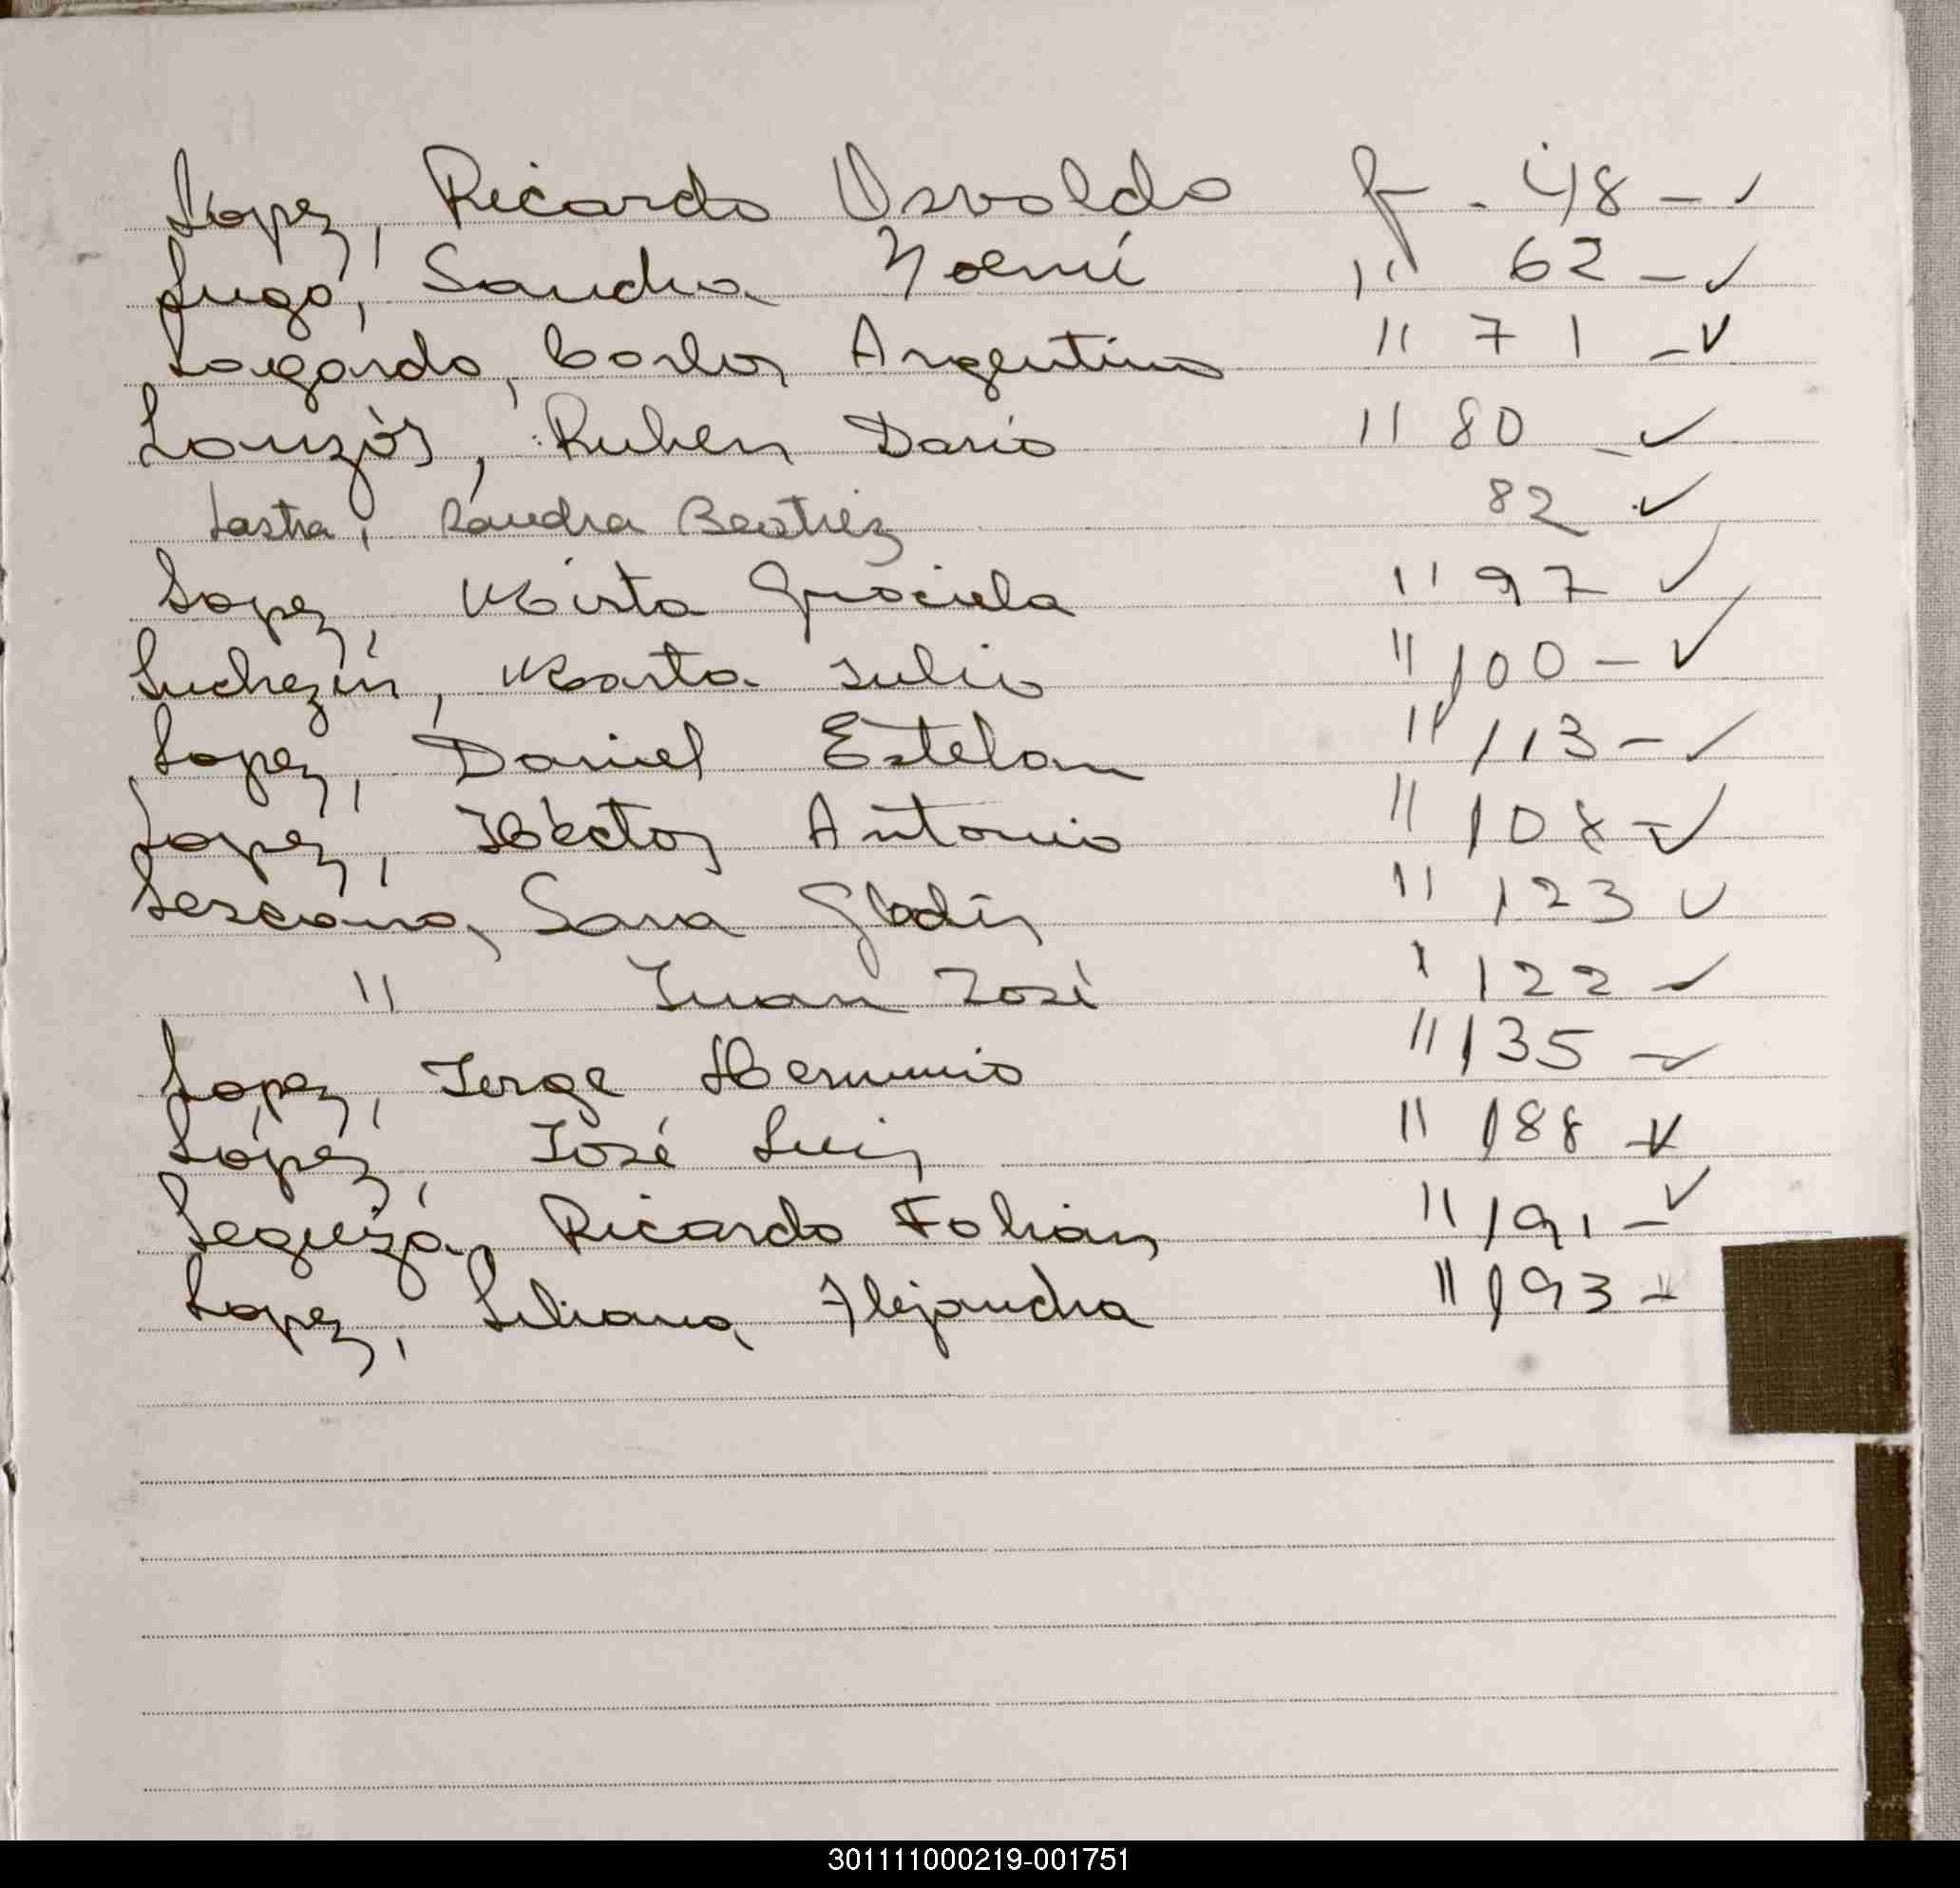 Lopez, Ricardo Osvaldo f. 48 - ✓
Lugo, Sandra Noemí " 62 - ✓
Lagarda, Carlos Argentino " 71 - ✓
Ruben Dario " 80 - ✓
Lastra, Sandra Beatriz 82 ✓
Lopez, Mirta Graciela " 97 ✓
Marta Julia " 100 - ✓
Lopez, Daniel Esteban " 113 - ✓
Lopez, Héctor Antonio " 108 - ✓
Lescano, Sara Gladis " 123 ✓
" Juan José " 122 ✓
Lopez, Jorge Herminio " 135 - ✓
López, José Luis " 188 - ✓
Leguiza, Ricardo Fabian " 191 - ✓
Lopez, Liliana Alejandra " 193 - ✓
301111000219-001751